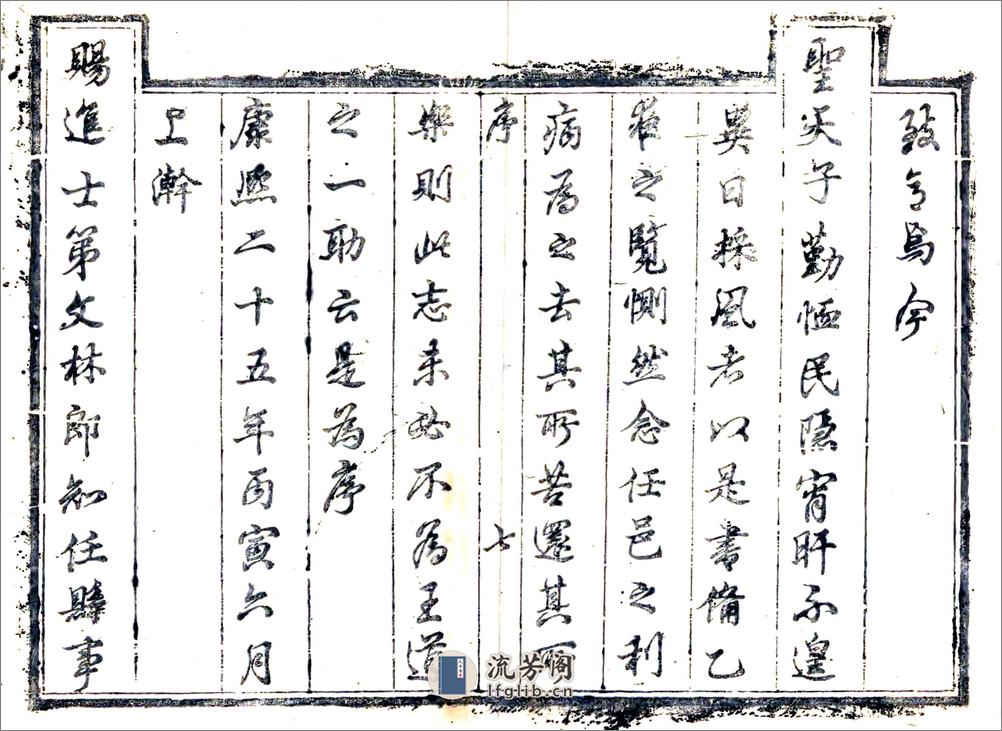 致意焉今
聖天子勤恤民隱宵旰不遑
異日採風者以是書備乙
夜之覽惻然念任邑之利
病為之去其所苦還其所
序 七
樂則此志未必不為王道
之一助云是為序
康熙二十五年丙寅六月
上澣
賜進士第文林郎知任縣事
流芳阁
lfglib.cn